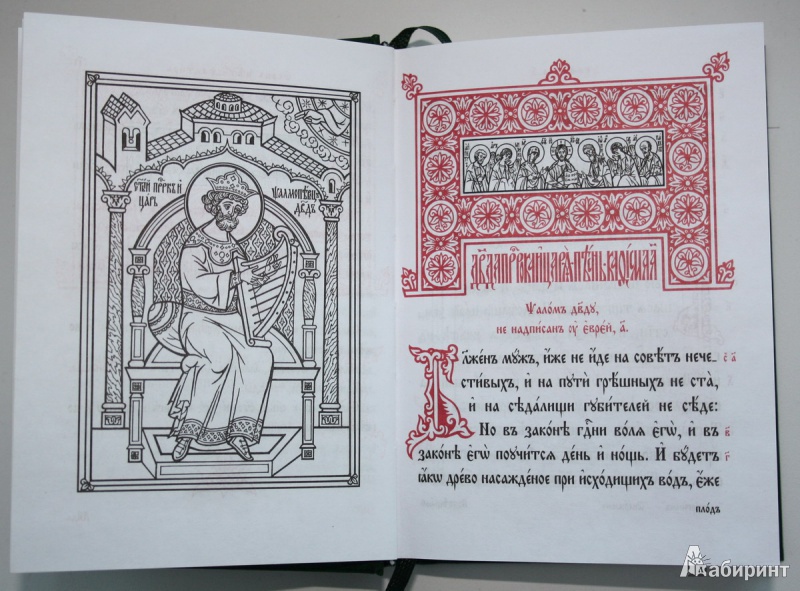 СТ҃ЫЙ ПРР҃КЪ И
ЦАРЬ
ѰАЛМОПѢВЕЦЪ
ДВ҃ДЪ
ДВ҃ДА ПРР҃КА И ЦАРѦ ПѢСНЬ
Ѱало́мъ дв҃дꙋ,
не надпи́санъ ᲂу҆ є҆вре́й, а҃.
Бл҃же́нъ мꙋ́жъ, и҆́же не и҆́де на совѣ́тъ нече-
сти́выхъ, и҆ на пꙋтѝ грѣ́шныхъ не ста̀,
и҆ на сѣда́лищи гꙋби́телей не сѣ́де:
Но въ зако́нѣ гдⷭ҇ни во́лѧ є҆гѡ̀, и҆ въ
зако́нѣ є҆гѡ̀ поꙋчи́тсѧ де́нь и҆ но́щь. И҆ бꙋ́детъ
ꙗ҆́кѡ дре́во насажде́ное при и҆схо́дищихъ во́дъ, є҆́же
пло́дъ
Лабиринт